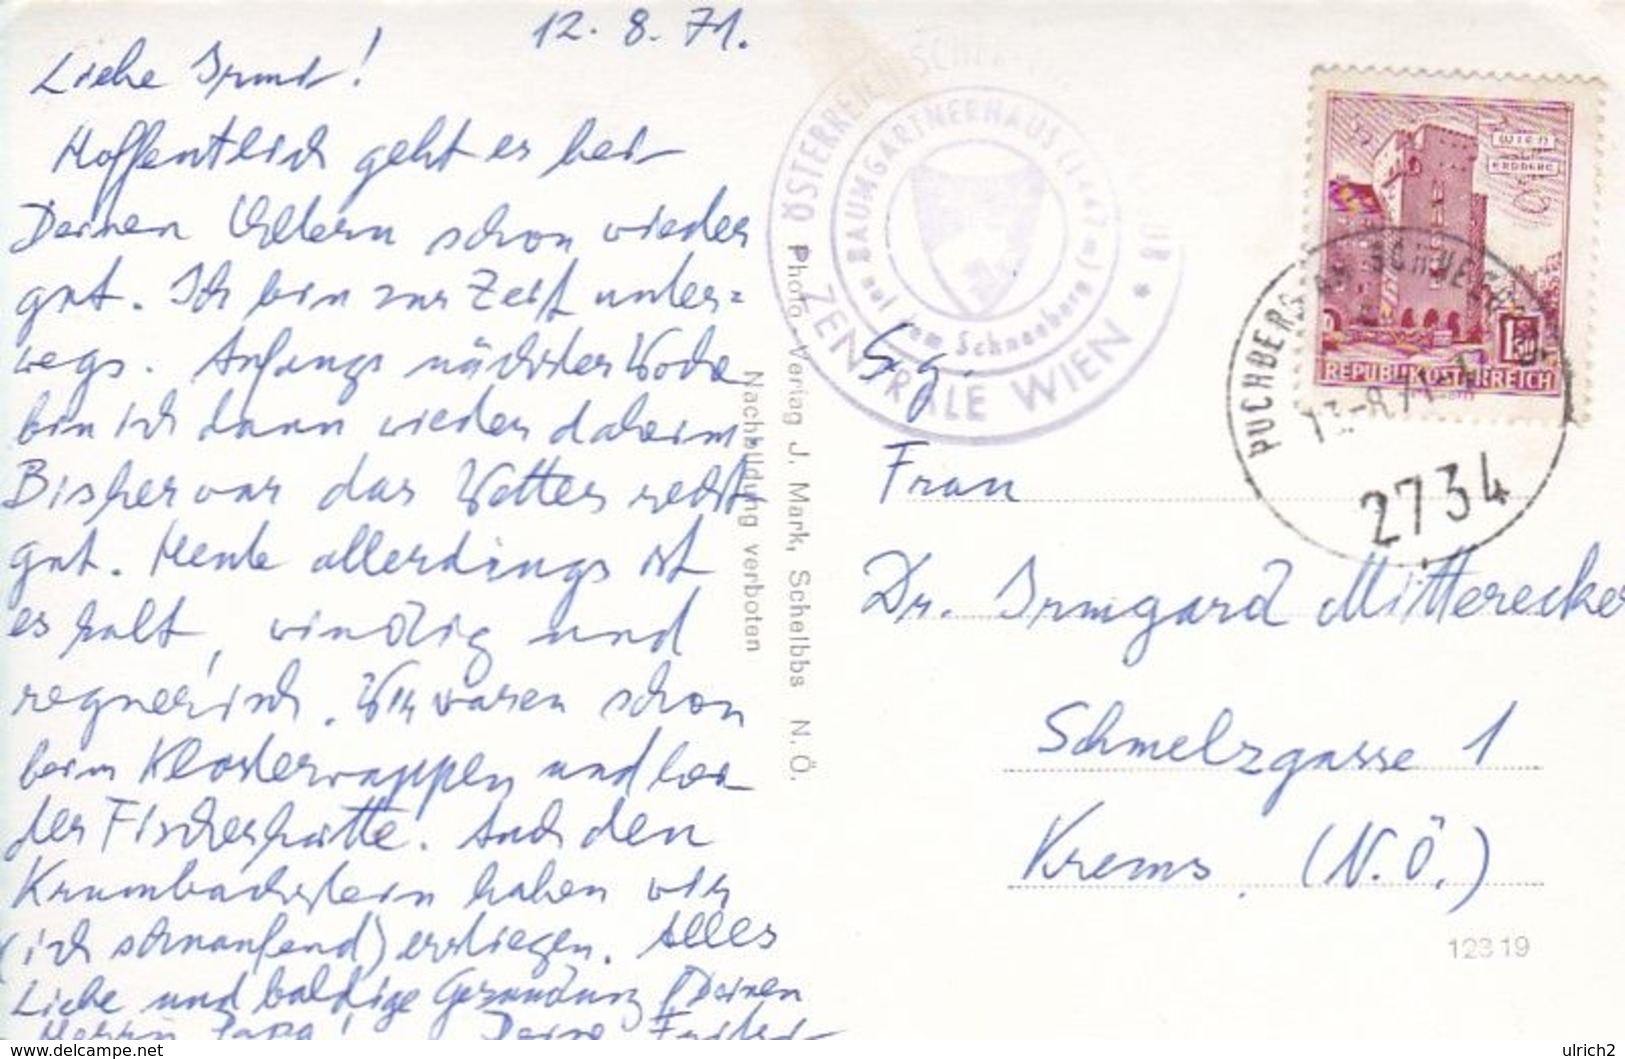 12. 8. 71.
Liebe Irmd!
Hoffentlich geht es bei
Deinen Eltern schon wieder
gut. Ich bin zur Zeit unter=
wegs. Anfangs nächster Woche
bin ich dann wieder daheim.
Bisher war das Wetter recht
gut. Heute allerdings ist
es kalt, windig und
regnerisch. Wir waren schon
beim Klosterwappen und bei
der Fischerhütte. Auch den
Krumbachstein haben wir
(ich schnaufend) erstiegen. Alles
Liebe und baldige Gesundung Deinem
Herrn Papa! Deine
Photo-Verlag J. Mark, Scheibbs N.Ö.
Nachbildung verboten
ÖSTERREICHISCHER
ZENTRALE WIEN *
BAUMGARTNERHAUS (1447 m)
auf dem Schneeberg
WIEN
ERDBERG
1.50
REPUBLIK ÖSTERREICH
PUCHBERG AM SCHNEEBERG
13.-8.71
2734
S. g.
Frau
Dr. Irmgard Mitterecker
Schmelzgasse 1
Krems (N.Ö.)
12319
www.delcampe.net
ulrich2